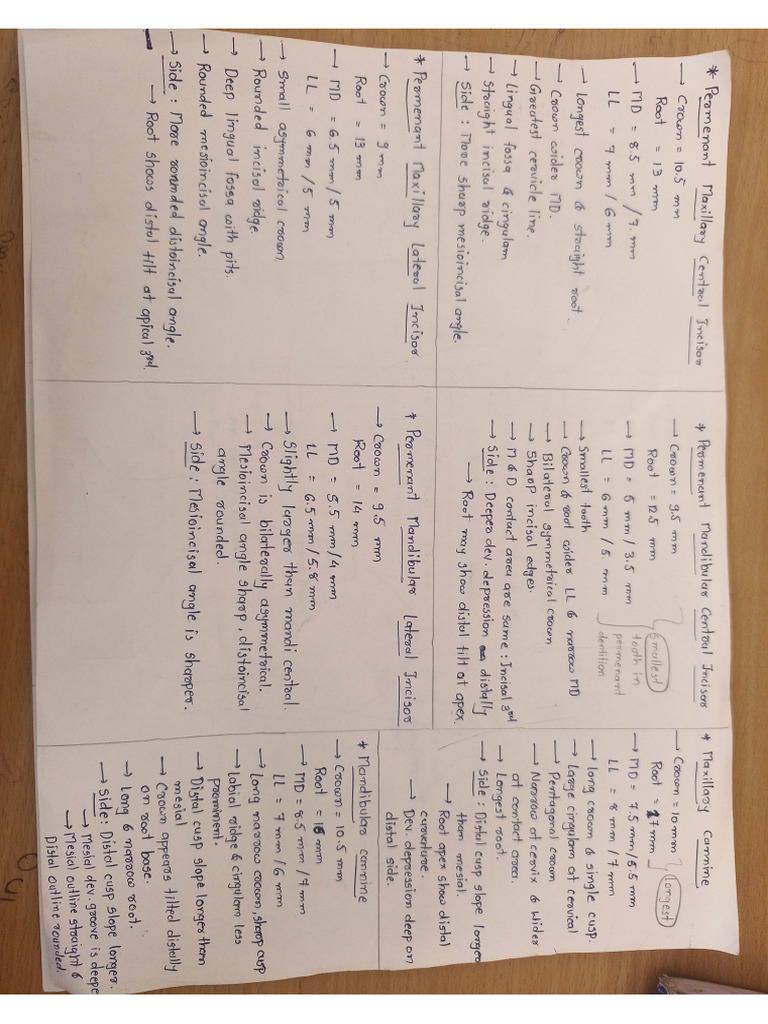 * Permenant Maxillary Central Incisor
→ Crown = 10.5 mm
Root = 13 mm
→ MD = 8.5 mm / 7. mm
LL = 7 mm / 6 mm
→ Longest crown & straight root.
→ Crown wider MD.
→ Greatest cervicle line.
→ Lingual fossa & cingulam
→ Straight incisal ridge.
→ Side : More sharp mesioincisal angle.
* Permenant Maxillary Lateral Incisor
→ Crown = 9 mm
Root = 13 mm
→ MD = 6.5 mm / 5 mm
LL = 6 mm / 5 mm
→ Small asymmetrical crown
→ Rounded incisal ridge
→ Deep lingual fossa with pits.
→ Rounded mesioincisal angle.
→ Side : More rounded distoincisal angle.
→ Root shows distal tilt at apical 3rd.
* Permenant Mandibular Central Incisor
→ Crown = 9.5 mm
Root = 12.5 mm
→ MD = 5 mm / 3.5 mm
LL = 6 mm / 5 mm
Smallest
tooth in
permenant
dentition.
→ Smallest tooth
→ Crown & root wider LL & narrow MD
→ Bilateral symmetrical crown
→ Sharp incisal edges.
→ M & D contact area are same : Incisal 3rd
→ Side : Deeper dev. depression distally
→ Root may show distal tilt at apex.
* Permenant Mandibular Lateral Incisor
→ Crown = 9.5 mm
Root = 14 mm
→ MD = 5.5 mm / 4 mm
LL = 6.5 mm / 5.8 mm
→ Slightly larger than mandi central.
→ Crown is bilaterally asymmetrical.
→ Mesioincisal angle sharp, distoincisal
angle rounded.
→ Side : Mesioincisal angle is sharper.
* Maxillary Cannine
→ Crown = 10 mm
Root = 17 mm
Longest
→ MD = 7.5 mm / 5.5 mm
LL = 8 mm / 7 mm
→ Long crown & single cusp
→ Large cingulam at cervical
→ Pentagonal crown
→ Narrow at cervix & wider
at contact area.
→ Longest root.
→ Side : Distal cusp slope longer
than mesial.
→ Root apex show distal
curvature.
→ Dev. depression deep on
distal side.
* Mandibular cannine
→ Crown = 10.5 mm
Root = 16 mm
→ MD = 8.5 mm / 7 mm
LL = 7 mm / 6 mm
→ Long narrow crown, sharp cusp
→ Labial ridge & cingulam less
prominent.
→ Distal cusp slope longer than
mesial
→ Crown appears tilted distally
on root base.
→ Long & narrow root.
→ Side : Distal cusp slope longer.
→ Mesial dev. groove is deepe
→ Mesial outline straight &
Distal outline rounded.